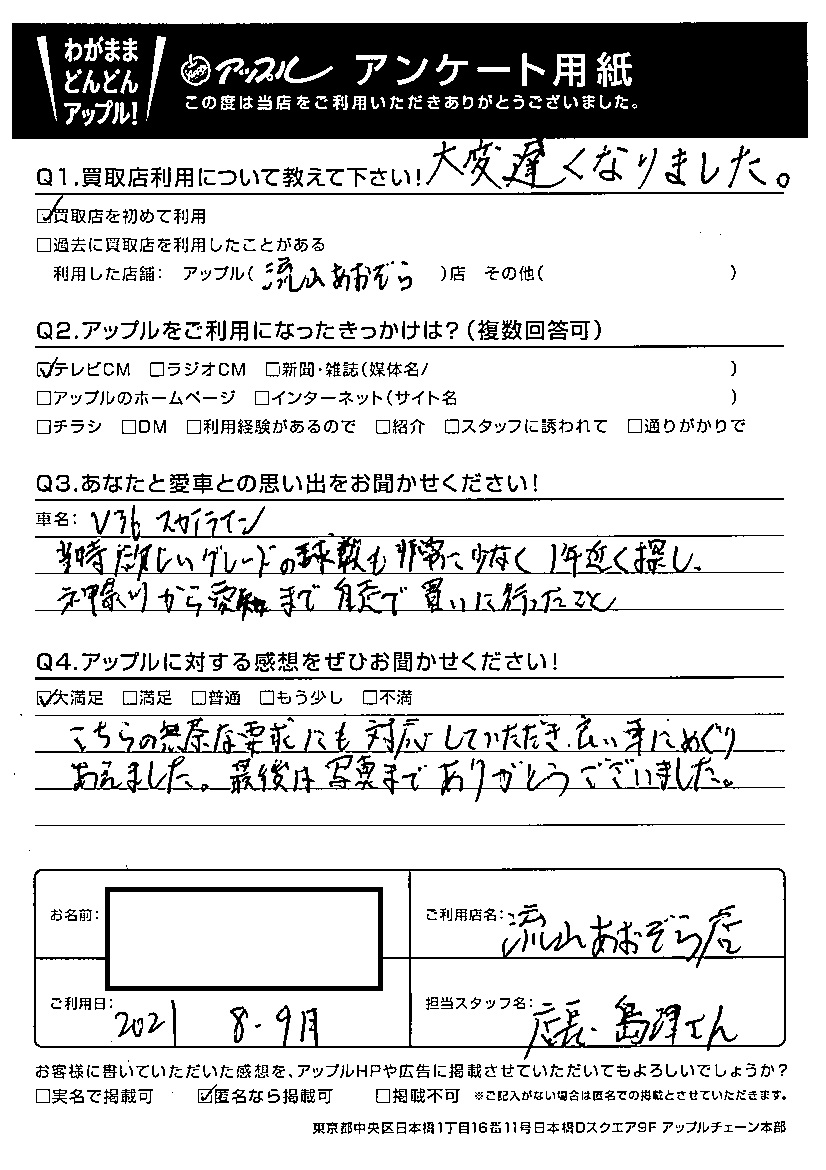 わがまま
どんどん
アップル!
アップル アンケート用紙
この度は当店をご利用いただきありがとうございました。
Q1.買取店利用について教えて下さい! 大変遅くなりました。
☑買取店を初めて利用
□過去に買取店を利用したことがある
利用した店舗: アップル( 流山あおぞら )店 その他( )
Q2.アップルをご利用になったきっかけは?(複数回答可)
☑テレビCM □ラジオCM □新聞・雑誌(媒体名/ )
□アップルのホームページ □インターネット(サイト名 )
□チラシ □DM □利用経験があるので □紹介 □スタッフに誘われて □通りがかりで
Q3.あなたと愛車との思い出をお聞かせください!
車名: V36 スカイライン
当時欲しいグレードの球数も非常に少なく1年近く探し、
神奈川から愛知まで自走で買いに行ったこと
Q4.アップルに対する感想をぜひお聞かせください!
☑大満足 □満足 □普通 □もう少し □不満
こちらの無茶な要求にも対応していただき、良い車にめぐり
あえました。最後は写真までありがとうございました。
お名前:
ご利用店名: 流山あおぞら店
ご利用日: 2021 8.9月
担当スタッフ名: 店長、島津さん
お客様に書いていただいた感想を、アップルHPや広告に掲載させていただいてもよろしいでしょうか?
□実名で掲載可 ☑匿名なら掲載可 □掲載不可 ※ご記入がない場合は匿名での掲載とさせていただきます。
東京都中央区日本橋1丁目16番11号日本橋Dスクエア9F アップルチェーン本部